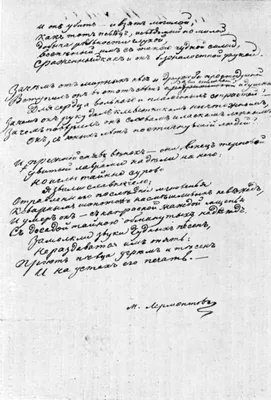 И онъ убитъ — и взятъ могилой,
Какъ тотъ пѣвецъ, невѣдомый но милый,
Добыча ревности глухой,
Воспѣтый имъ съ такою чудной силой,
Сраженный какъ и онъ безжалостной рукой.
Зачѣмъ отъ мирныхъ нѣгъ и дружбы простодушной
Вступилъ онъ въ этотъ свѣтъ завистливый и душный
Для сердца вольнаго и пламенныхъ страстей?
Зачѣмъ онъ руку далъ клеветникамъ ничтожнымъ,
Зачѣмъ повѣрилъ онъ словамъ и ласкамъ ложнымъ,
Онъ, съ юныхъ лѣтъ постигнувшій людей?
И прежній снявъ вѣнокъ — они вѣнецъ терновый
Увитый лаврами надѣли на него;
Но иглы тайныя сурово
Язвили славное чело;
Отравлены его послѣднія мгновенья
Коварнымъ шопотомъ насмѣшливыхъ невѣждъ,
И умеръ онъ — съ напрасной жаждой мщенья
Съ досадой тайною обманутыхъ надеждъ.
Замолкли звуки чудныхъ пѣсенъ,
Не раздаваться имъ опять:
Приютъ пѣвца угрюмъ и тѣсенъ
И на устахъ его печать. —
М. Лермонтовъ